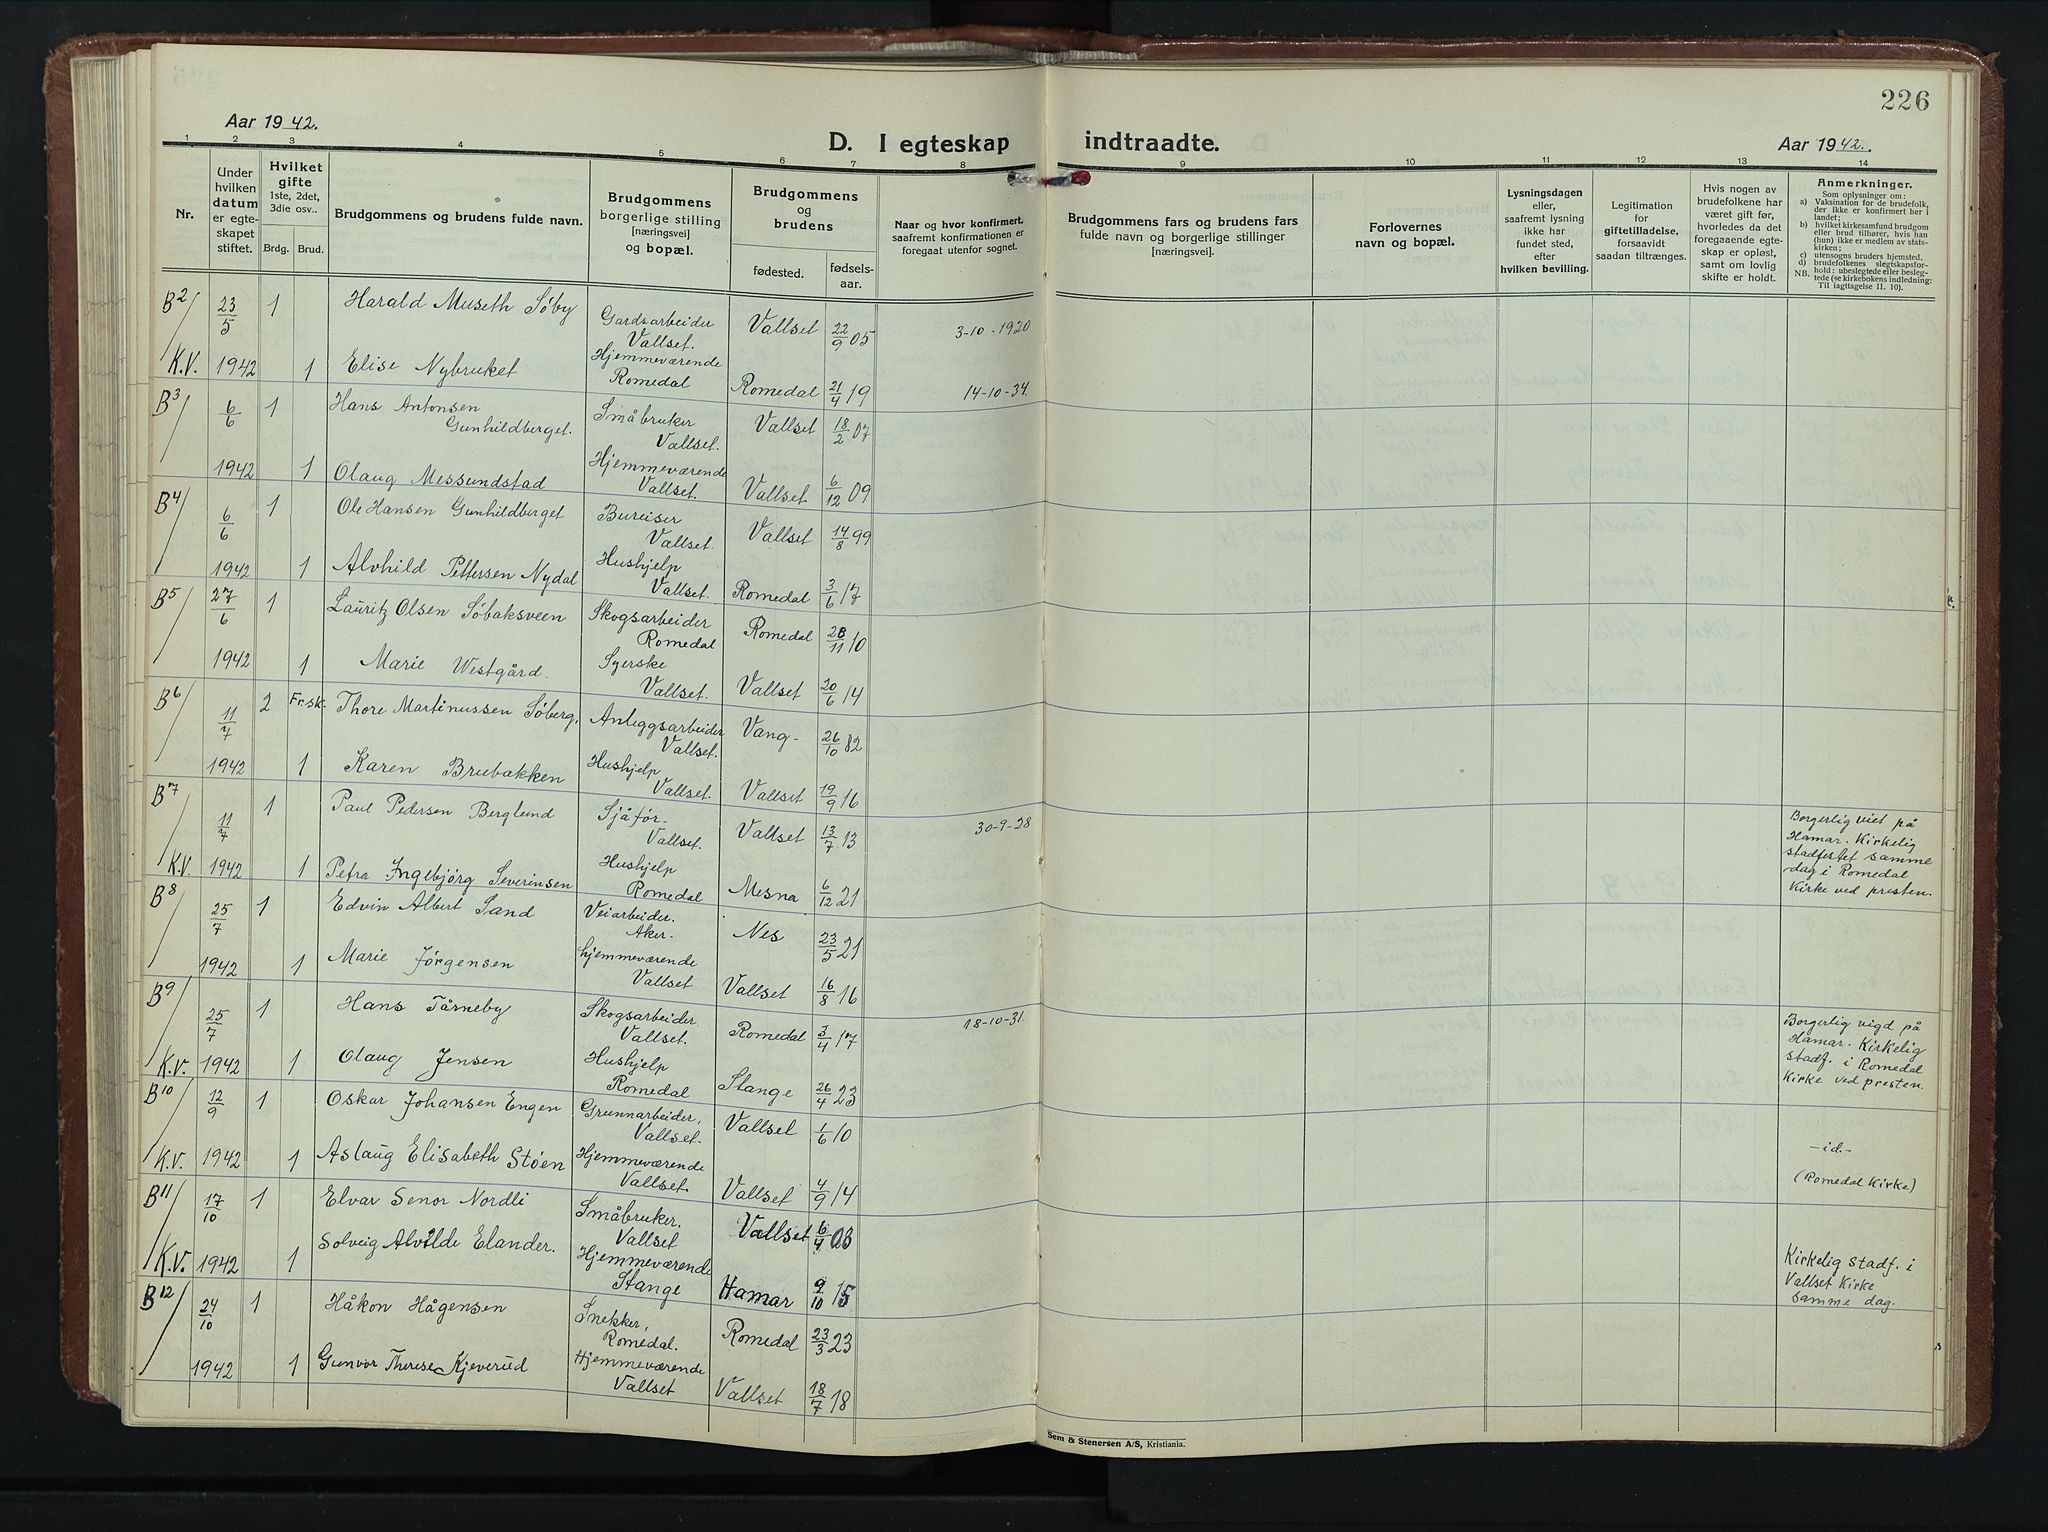 226
Aar 1942.
D. I egteskap indtraadte.
Aar 1942.
1 2 3 4 5 6 7 8 9 10 11 12 13 14
Nr.
Under hvilken datum er egte-skapet stiftet.
Hvilket gifte 1ste, 2det, 3die osv..
Brdg. Brud.
Brudgommens og brudens fulde navn.
Brudgommens borgerlige stilling [næringsvei] og bopæl.
Brudgommens og brudens
fødested. fødsels-aar.
Naar og hvor konfirmert, saafremt konfirmationen er foregaat utenfor sognet.
Brudgommens fars og brudens fars fulde navn og borgerlige stillinger [næringsvei].
Forlovernes navn og bopæl.
Lysningsdagen eller, saafremt lysning ikke har fundet sted, efter hvilken bevilling.
Legitimation for giftetilladelse, forsaavidt saadan tiltrænges.
Hvis nogen av brudefolkene har været gift før, hvorledes da det foregaaende egte-skap er opløst, samt om lovlig skifte er holdt.
Anmerkninger.
Som oplysninger om:
a) Vaksination for de brudefolk, der ikke er konfirmert her i landet;
b) hvilket kirkesamfund brudgom eller brud tilhører, hvis han (hun) ikke er medlem av stats-kirken;
c) utensogns bruders hjemsted.
d) brudefolkenes slegtskapsfor-hold: ubeslegtede eller besleg-tede (se kirkebokens indledning:
NB. Til iagttagelse II. 10).
B2/ 23/5 1 Harald Museth Søby Gardsarbeider Vallset. Vallset 22/9 05 3-10-1920
K.V. 1942 1 Elise Nybruket Hjemmeværende Romedal Romedal 21/4 19 14-10-34.
B3/ 6/6 1 Hans Antonsen Gunhildberget. Småbruker Vallset. Vallset 18/2 07
1942 1 Olaug Messundstad Hjemmeværende Vallset. Vallset 6/12 09
B4/ 6/6 1 Ole Hansen Gunhildberget Bureiser Vallset. Vallset 14/8 99
1942 1 Alvhild Pettersen Nydal Hushjelp Vallset. Romedal 3/6 17
B5/ 27/6 1 Lauritz Olsen Søbaksveen Skogsarbeider Romedal Romedal 28/11 10
1942 1 Marie Westgård. Syerske Vallset. Vallset 20/6 14
B6/ 11/7 2 Fr.sk. Thore Martinussen Søberg, Anleggsarbeider Vallset. Vang- 26/10 82
1942 1 Karen Brubakken Hushjelp Vallset. Vallset 19/9 16
B7/ 11/7 1 Paul Pedersen Berglund Sjåfør- Vallset. Vallset 13/7 13 30-9-28 Borgerlig viet på Hamar. Kirkelig stadfestet samme dag i Romedal Kirke ved presten.
K.V. 1942 1 Petra Ingebjörg Severinsen Hushjelp Romedal Mesna 6/12 21
B8/ 25/7 1 Edvin Albert Sand Veiarbeider. Aker. Nes 23/5 21
1942 1 Marie Jørgensen hjemmeværende Vallset Vallset 16/8 16
B9/ 25/7 1 Hans Tårneby Skogsarbeider Vallset. Romedal 3/4 17 18-10-31. Borgerlig vigd på Hamar. Kirkelig stadf. i Romedal Kirke ved presten.
K.V. 1942 1 Olaug Jensen Hushjelp Romedal Stange 26/4 23
B10/ 12/9 1 Oskar Johansen Engen Grunnarbeider, Vallset. Vallset 1/6 10
K.V. 1942 1 Aslaug Elisabeth Støen Hjemmeværende Vallset. Vallset 4/9 14 -id.- (Romedal Kirke)
B11/ 17/10 1 Elvar Senor Nordli Småbruker. Vallset Vallset 6/4 08
K.V. 1942 1 Solveig Alvilde Elander. Hjemmeværende Stange Hamar 9/10 15 Kirkelig stadf. i Vallset Kirke samme dag.
B12/ 24/10 1 Håkon Hågensen Snekker, Romedal. Romedal 23/3 23
1942 1 Gunvor Therese Kjeverud Hjemmeværende Vallset Vallset 18/7 18
Sem & Stenersen A/S, Kristiania.